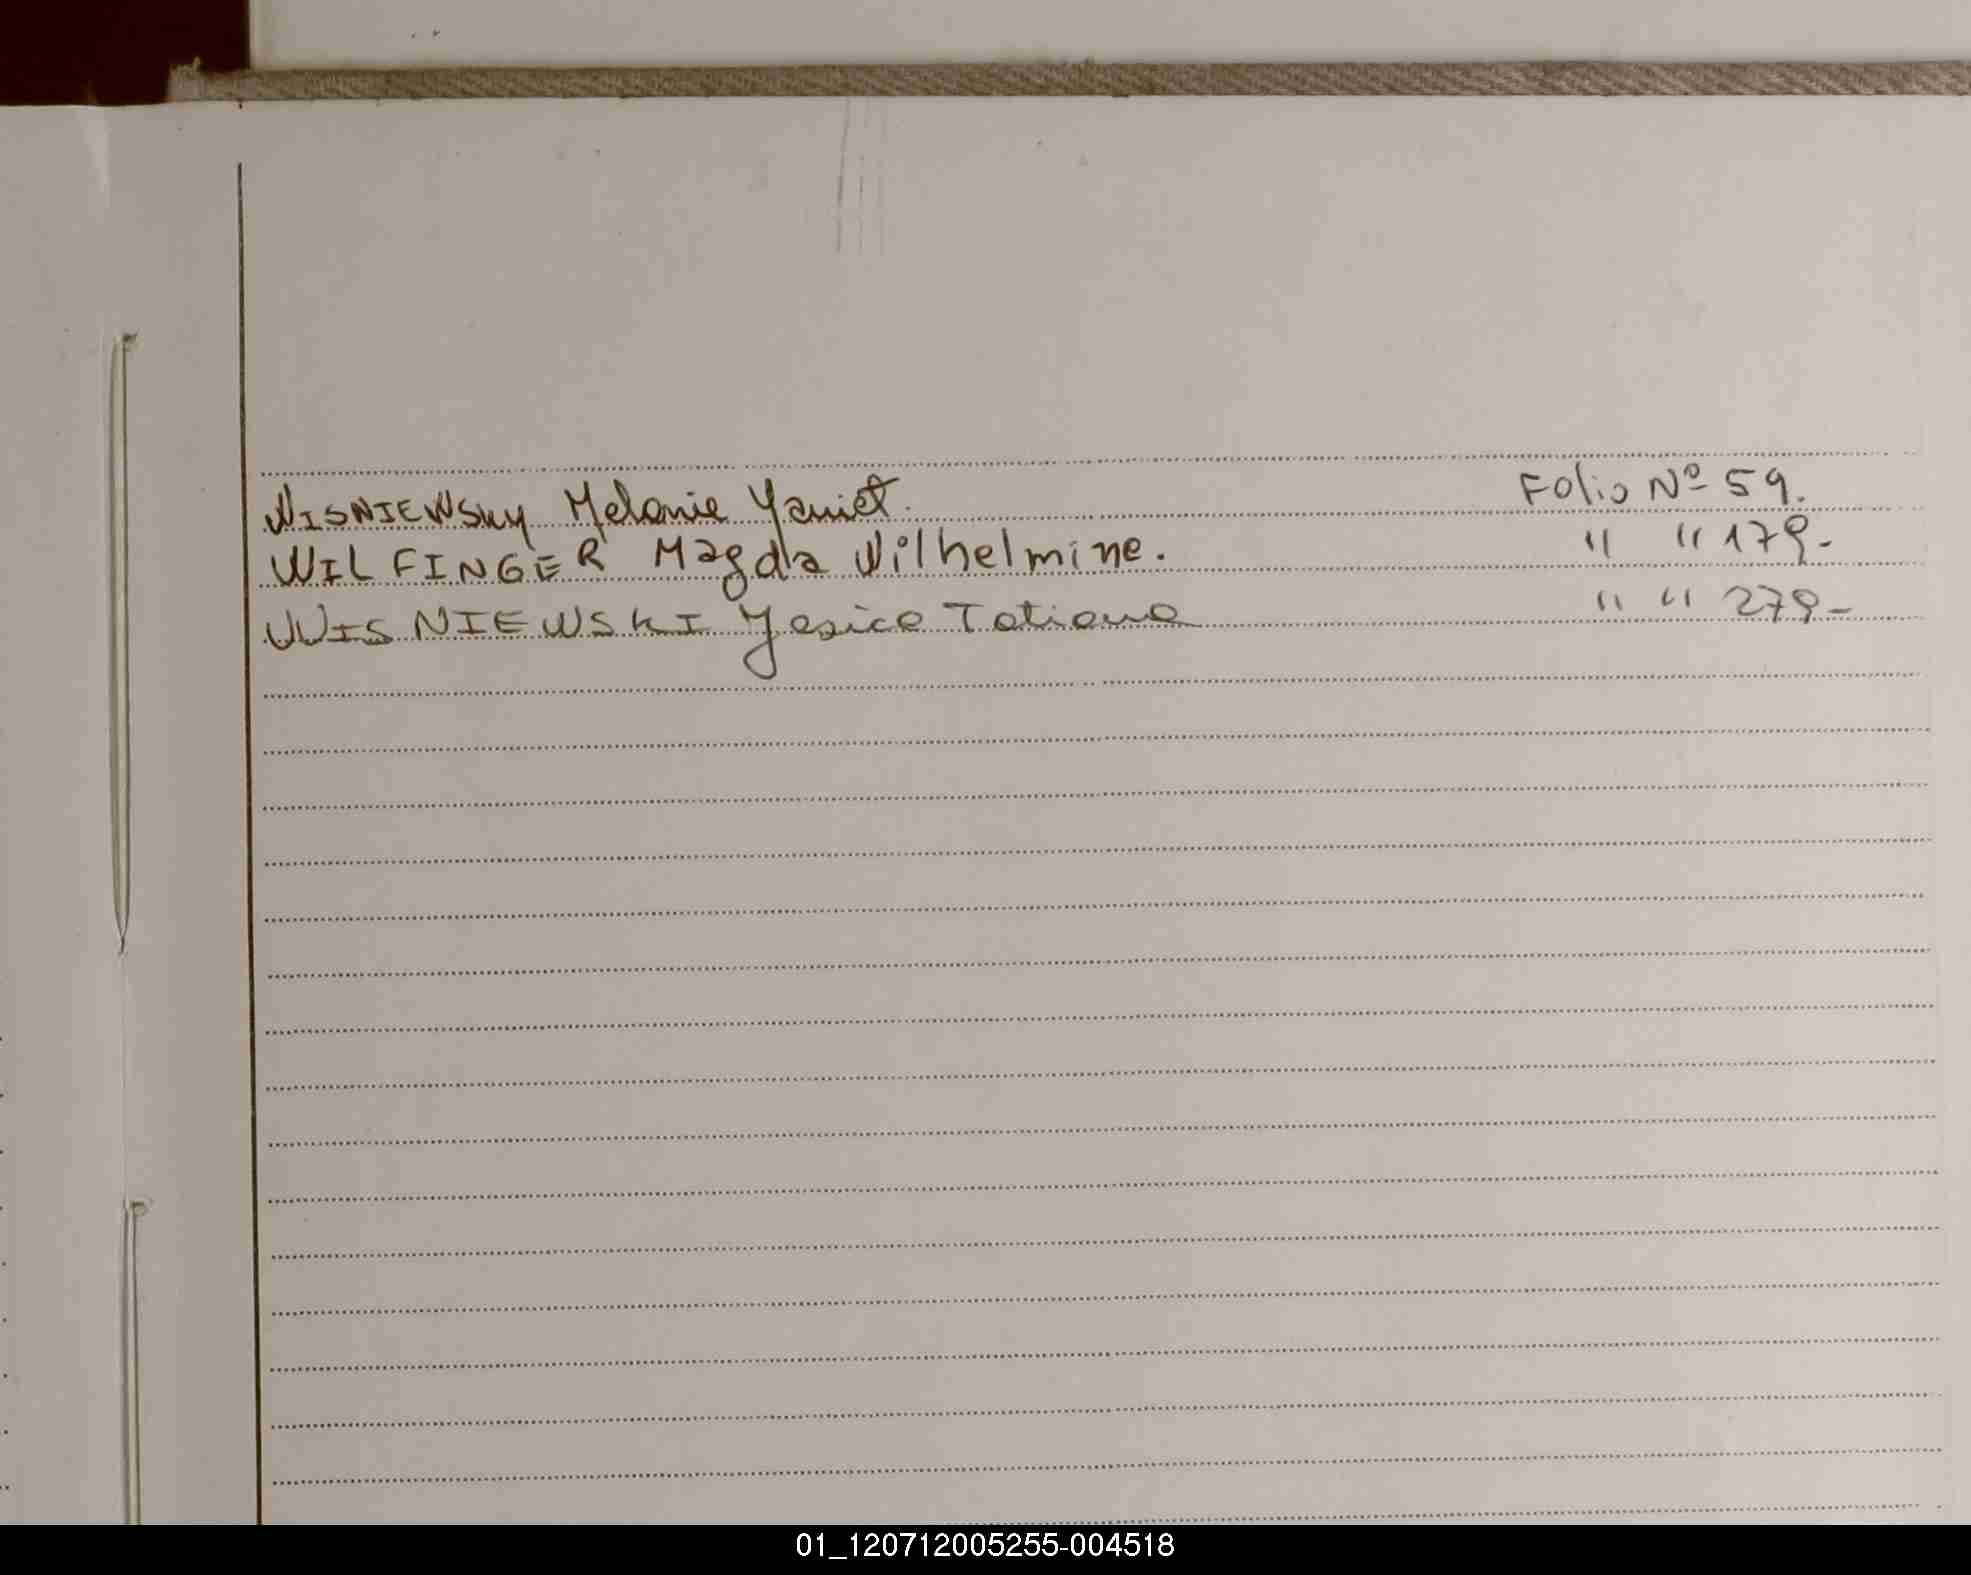 WISNIEWSKY Melanie Yaniet. Folio Nº 59.
WILFINGER Magda Wilhelmine. " " 179-
WISNIEWSKI Yesica Tatiana " " 279-
01_120712005255-004518